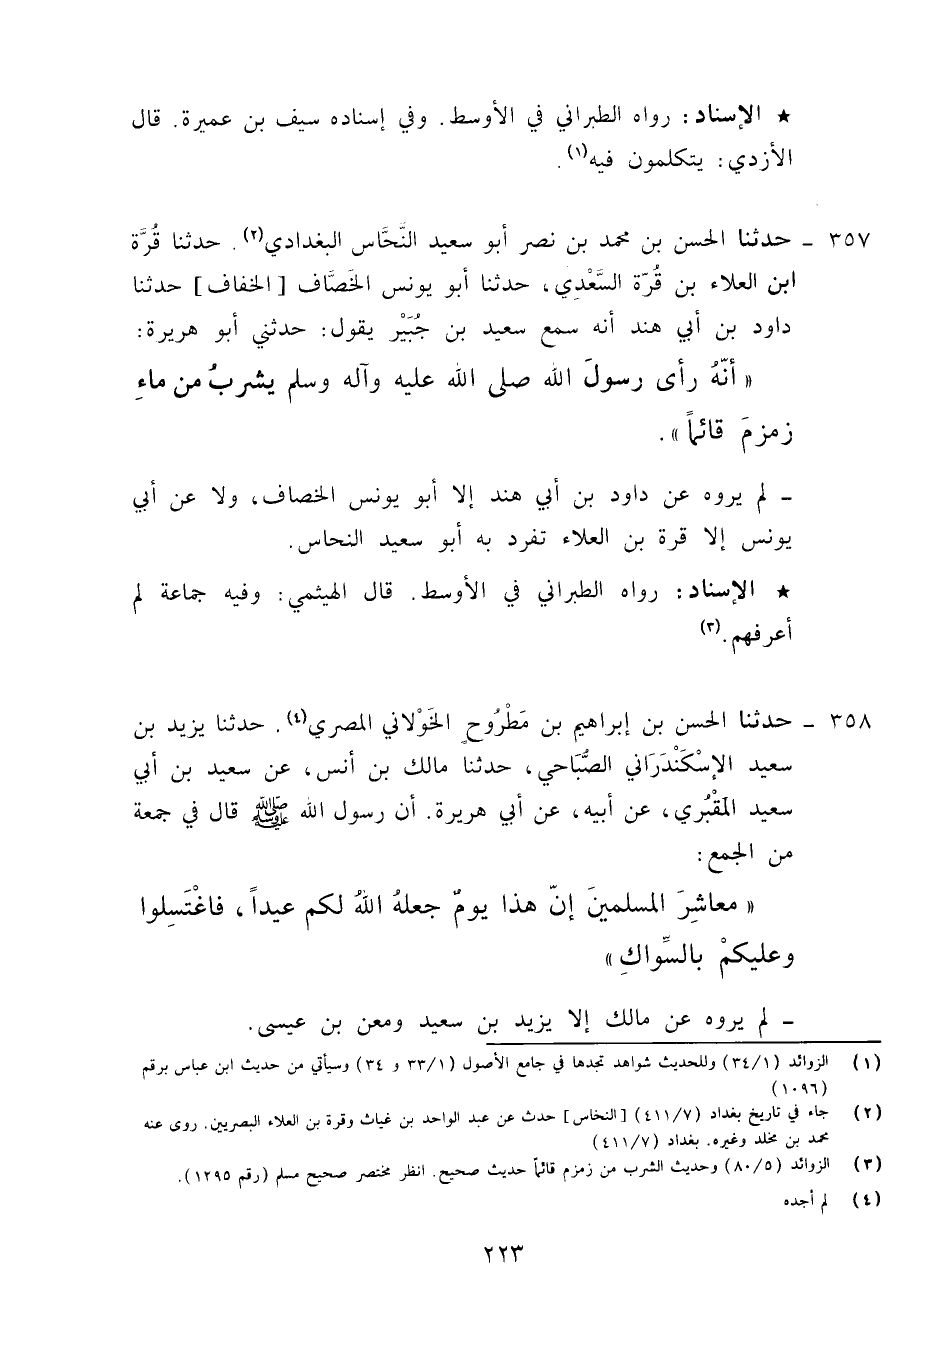 ★ الإسناد: رواه الطبراني في الأوسط. وفي إسناده سيف بن عميرة. قال
الأزدي: يتكلمون فيه(١).
٣٥٧ ـ حدثنا الحسن بن محمد بن نصر أبو سعيد النَّحَّاس البغدادي(٢). حدثنا قُرَّة
ابن العلاء بن قُرّة السَّعْدِي، حدثنا أبو يونس الخَصَّاف [الخفاف] حدثنا
داود بن أبي هند أنه سمع سعيد بن جُبَيْر يقول: حدثني أبو هريرة:
« أنّهُ رأى رسولَ الله صلى الله عليه وآله وسلم يشربُ من ماءِ
زمزمَ قائماً ».
ـ لم يروه عن داود بن أبي هند إلا أبو يونس الخصاف، ولا عن أبي
يونس إلا قرة بن العلاء تفرد به أبو سعيد النحاس.
★ الإسناد: رواه الطبراني في الأوسط. قال الهيثمي: وفيه جماعة لم
أعرفهم.(٣)
٣٥٨ ـ حدثنا الحسن بن إبراهيم بن مَطْرُوحٍ الخَوْلاني المصري(٤). حدثنا يزيد بن
سعيد الإسْكَنْدَرَاني الصُّبَاحي، حدثنا مالك بن أنس، عن سعيد بن أبي
سعيد المَقْبُري، عن أبيه، عن أبي هريرة. أن رسول الله ﷺ قال في جمعة
من الجمع:
« معاشِرَ المسلمينَ إنّ هذا يومٌ جعلهُ اللهُ لكم عيداً، فاغْتَسِلوا
وعليكمْ بالسِّواكِ»
ـ لم يروه عن مالك إلا يزيد بن سعيد ومعن بن عيسى.
(١) الزوائد (٣٤/١) وللحديث شواهد تجدها في جامع الأصول (٣٣/١ و ٣٤) وسيأتي من حديث ابن عباس برقم
(١٠٩٦)
(٢) جاء في تاريخ بغداد (٤١١/٧) [النخاس] حدث عن عبد الواحد بن غياث وقرة بن العلاء البصريين. روى عنه
محمد بن مخلد وغيره. بغداد (٤١١/٧)
(٣) الزوائد (٨٠/٥) وحديث الشرب من زمزم قائماً حديث صحيح. انظر مختصر صحيح مسلم (رقم ١٢٩٥).
(٤) لم أجده
٢٢٣